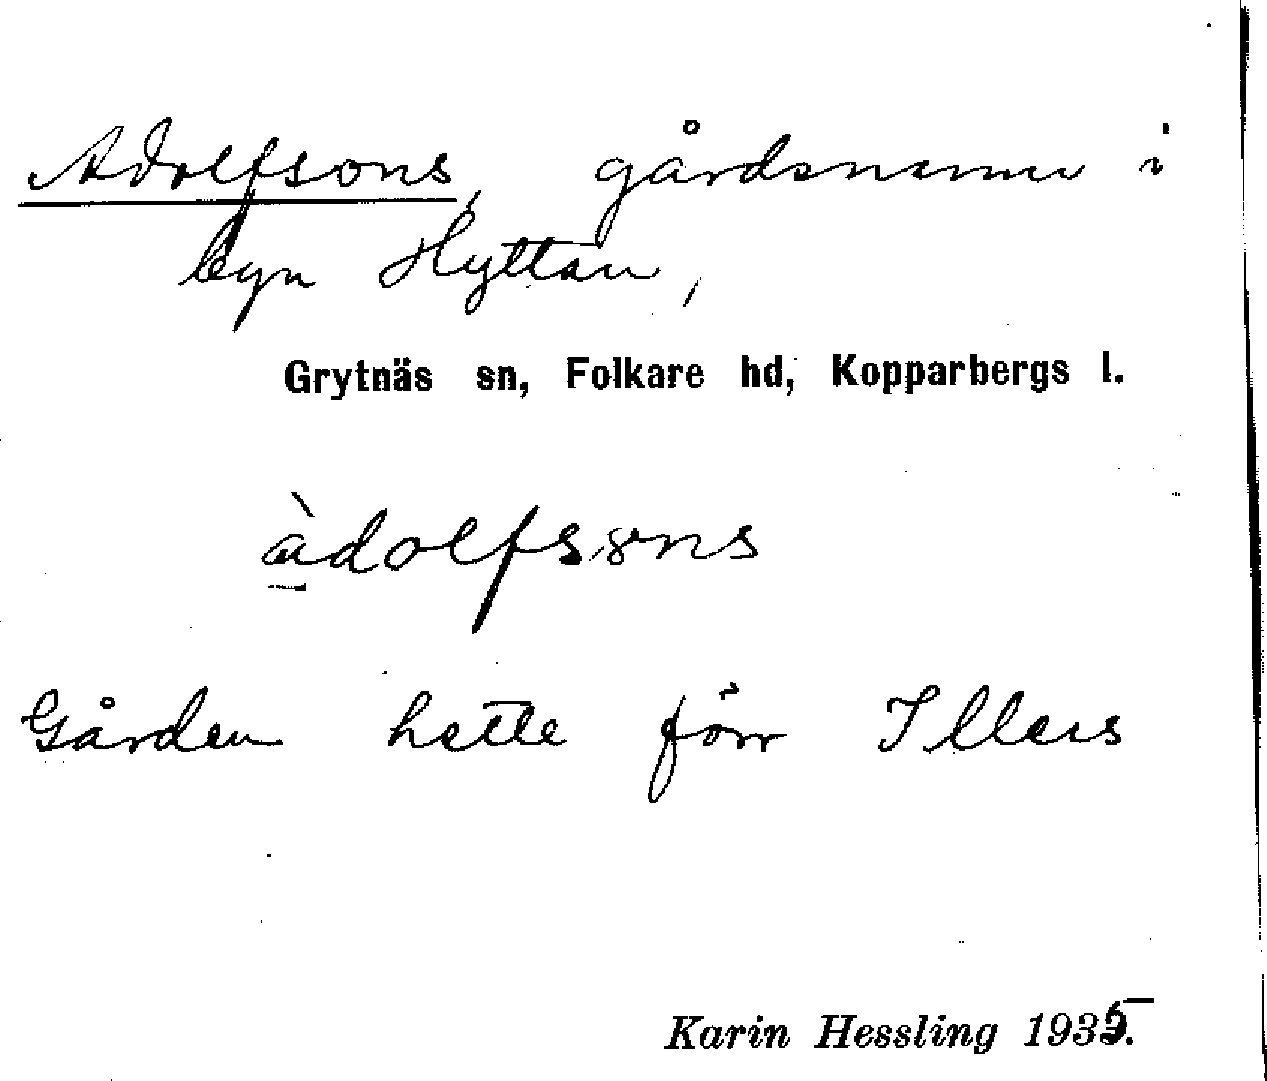 Adolfsons, gårdsnamn i
byn Hyttan,
Grytnäs sn, Folkare hd, Kopparbergs l.
àdolfsons
Gården hette förr Illers
Karin Hessling 1935.